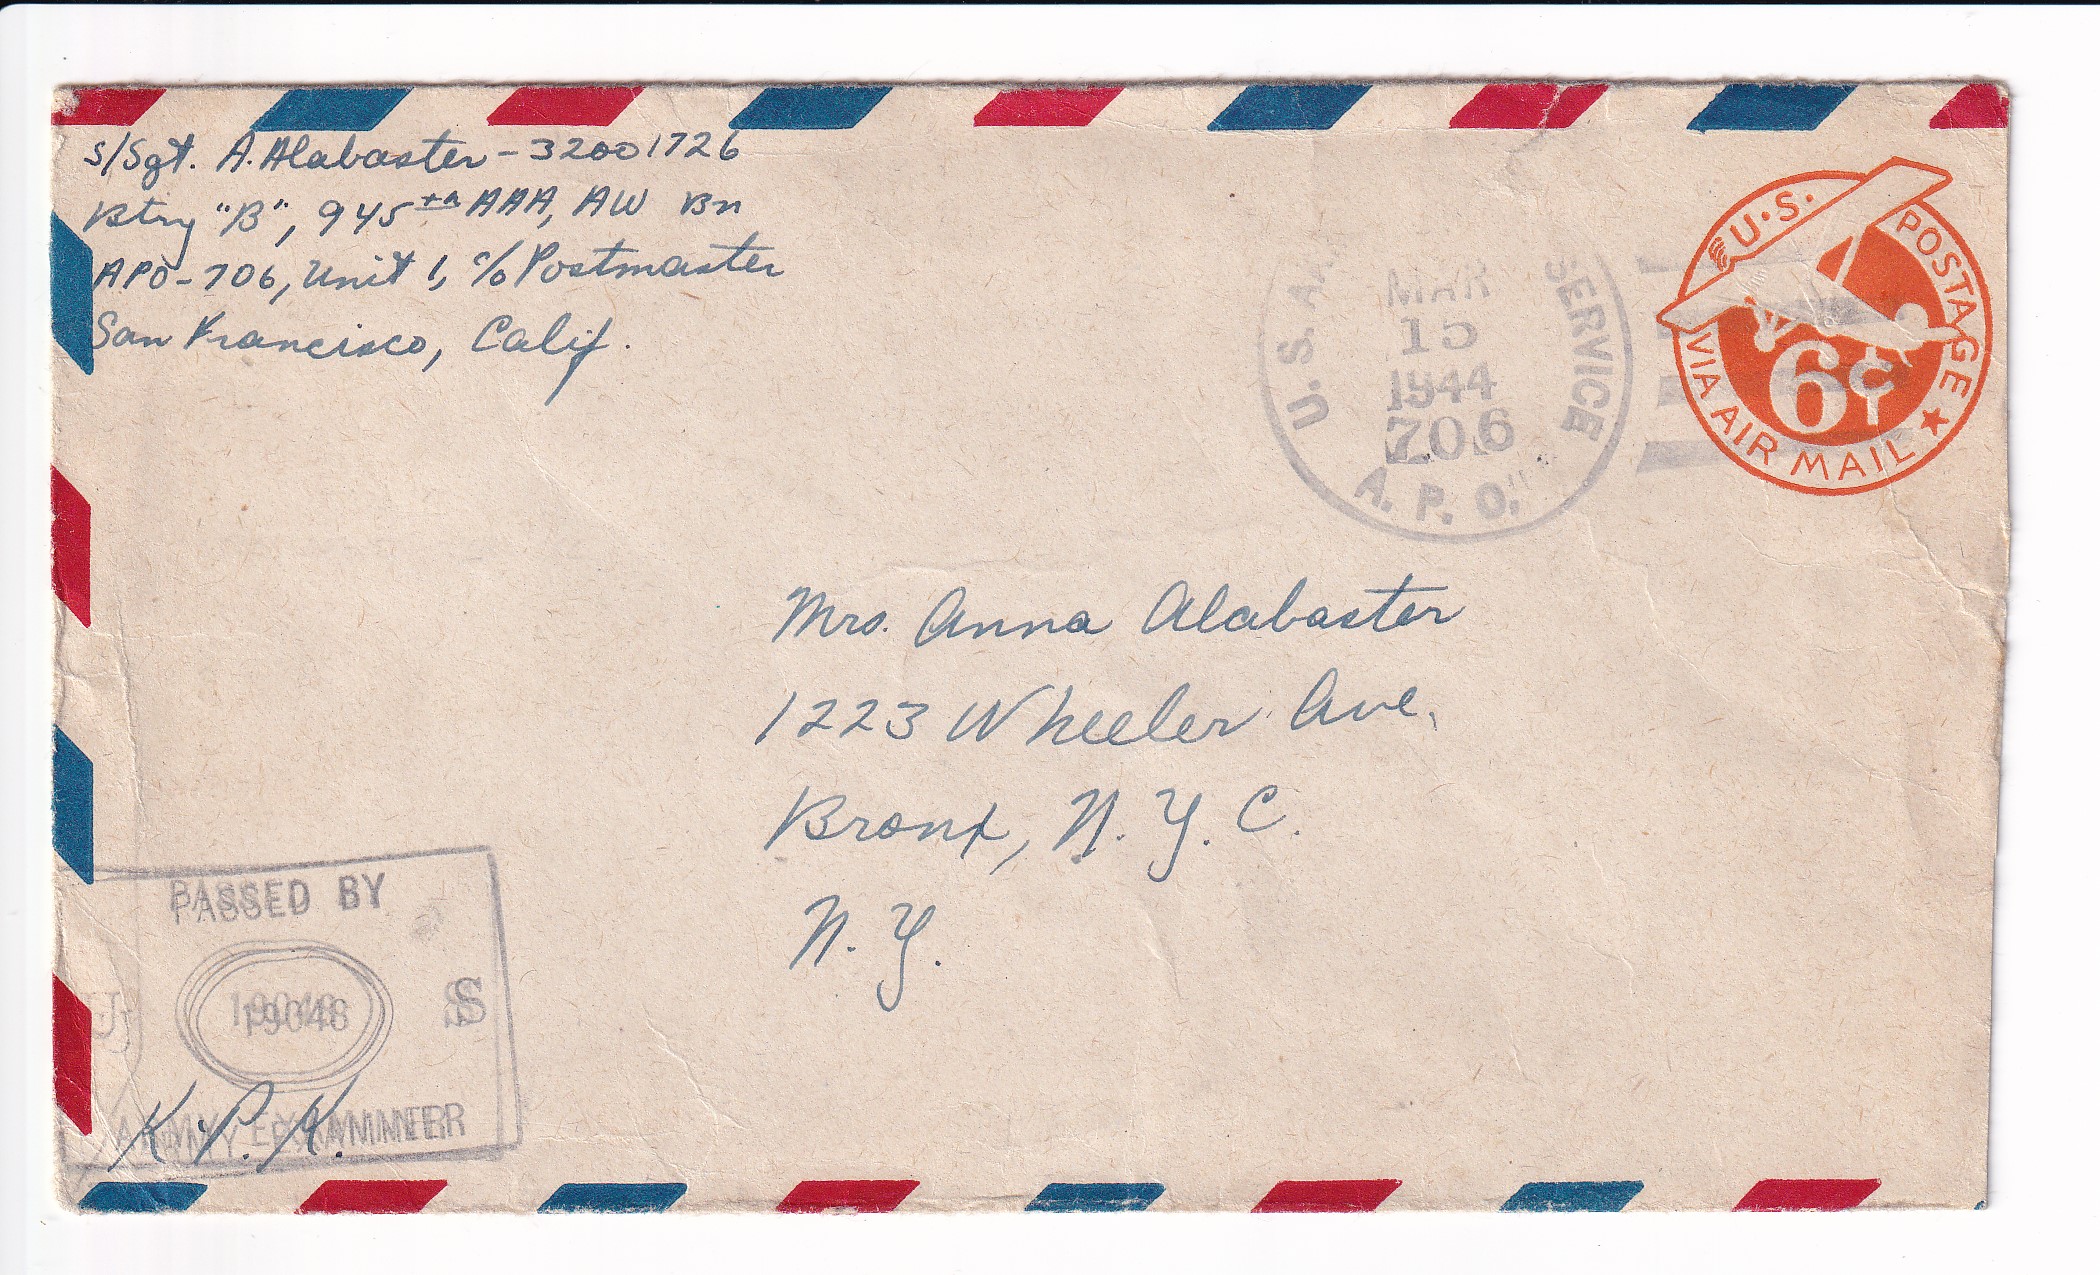 S/Sgt. A. Alabaster - 32001726
Btry "B", 945th AAA, AW Bn
APO - 706, Unit 1, c/o Postmaster
San Francisco, Calif.
U.S. POSTAGE
6¢
VIA AIR MAIL
U.S. SERVICE
MAR
15
1944
706
A. P. O.
Mrs. Anna Alabaster
1223 Wheeler Ave.
Bronx, N. Y. C.
N. Y.
PASSED BY
U S
19048
ARMY EXAMINER
K. P. K.